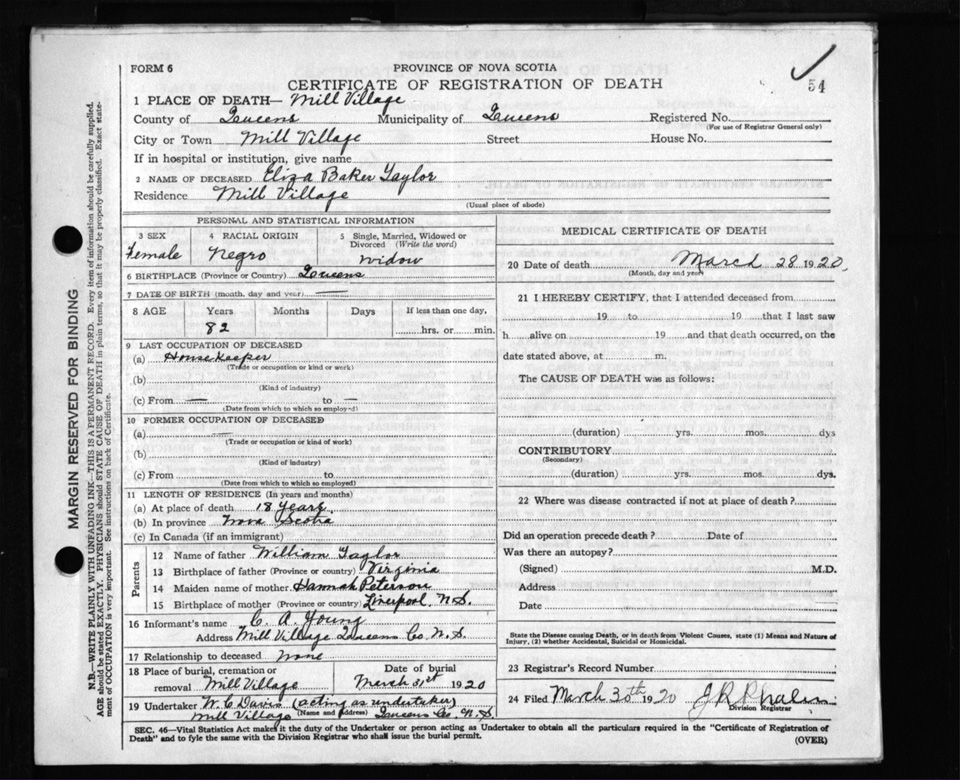 FORM 6
PROVINCE OF NOVA SCOTIA
CERTIFICATE OF REGISTRATION OF DEATH
54
1 PLACE OF DEATH— Mill Village
County of Queens Municipality of Queens Registered No.
(For use of Registrar General only)
City or Town Mill Village Street House No.
If in hospital or institution, give name
2 NAME OF DECEASED Eliza Baker Taylor
Residence Mill Village
(Usual place of abode)
PERSONAL AND STATISTICAL INFORMATION
3 SEX 4 RACIAL ORIGIN 5 Single, Married, Widowed or Divorced (Write the word)
Female Negro widow
6 BIRTHPLACE (Province or Country) Queens
7 DATE OF BIRTH (month, day and year) —
8 AGE Years Months Days If less than one day,
82 hrs. or min.
9 LAST OCCUPATION OF DECEASED
(a) Housekeeper
(Trade or occupation or kind or work)
(b)
(Kind of industry)
(c) From — to —
(Date from which to which so employed)
10 FORMER OCCUPATION OF DECEASED
(a) —
(Trade or occupation or kind of work)
(b)
(Kind of industry)
(c) From to
(Date from which to which so employed)
11 LENGTH OF RESIDENCE (In years and months)
(a) At place of death 18 years
(b) In province Nova Scotia
(c) In Canada (if an immigrant)
Parents
12 Name of father William Taylor
13 Birthplace of father (Province or country) Virginia
14 Maiden name of mother Hannah Peterson
15 Birthplace of mother (Province or country) Liverpool, N.S.
16 Informant's name C. A. Young
Address Mill Village Queens Co. N.S.
17 Relationship to deceased none
18 Place of burial, cremation or removal Mill Village
Date of burial
March 31st 1920
19 Undertaker W. C. Davis (acting as undertaker)
(Name and Address)
Mill Village Queens Co. N.S.
MEDICAL CERTIFICATE OF DEATH
20 Date of death March 28 1920,
(Month, day and year)
21 I HEREBY CERTIFY, that I attended deceased from
19 to 19 that I last saw
h alive on 19 and that death occurred, on the
date stated above, at m.
The CAUSE OF DEATH was as follows:
(duration) yrs. mos. dys
CONTRIBUTORY
(Secondary)
(duration) yrs. mos. dys.
22 Where was disease contracted if not at place of death?
Did an operation precede death? Date of
Was there an autopsy?
(Signed) M.D.
Address
Date
State the Disease causing Death, or in death from Violent Causes, state (1) Means and Nature of
Injury, (2) whether Accidental, Suicidal or Homicidal.
23 Registrar's Record Number
24 Filed March 30th 1920 J R Phalen
Division Registrar
SEC. 46—Vital Statistics Act makes it the duty of the Undertaker or person acting as Undertaker to obtain all the particulars required in the "Certificate of Registration of
Death" and to fyle the same with the Division Registrar who shall issue the burial permit.
(OVER)
MARGIN RESERVED FOR BINDING
N.B.—WRITE PLAINLY WITH UNFADING INK—THIS IS A PERMANENT RECORD. Every item of information should be carefully supplied.
AGE should be stated EXACTLY. PHYSICIANS should STATE CAUSE OF DEATH in plain terms, so that it may be properly classified. Exact state-
ment of OCCUPATION is very important. See instructions on back of Certificate.